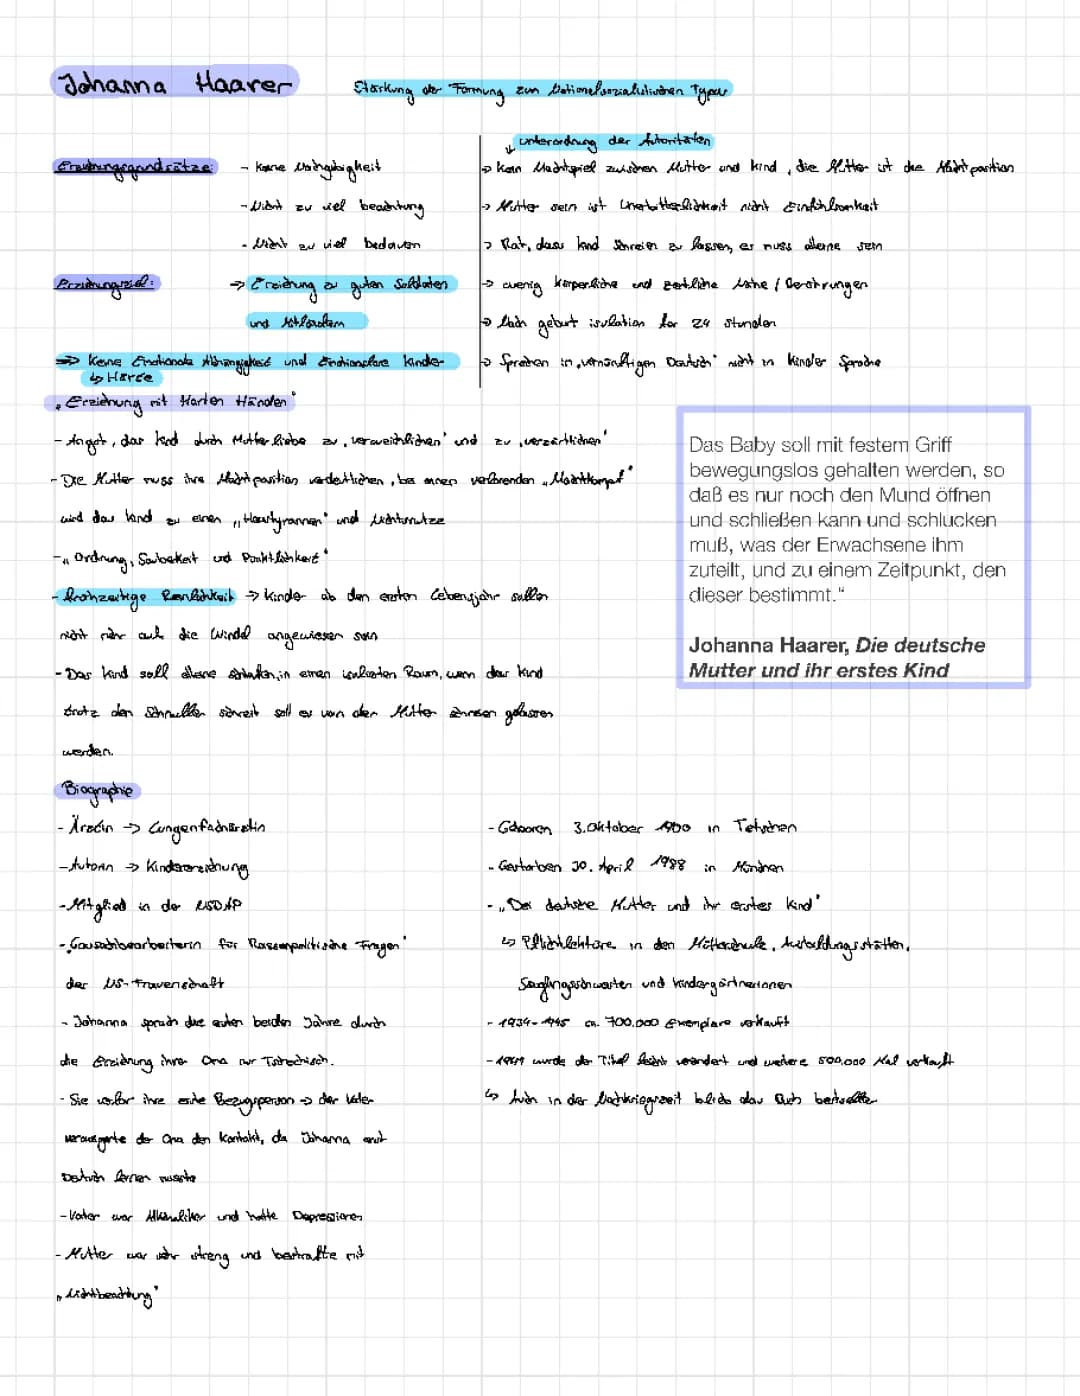 Johanna Haarer
Stärkung der Formung zum Nationalsozialistischen Typus
Unterordnung der Autoritäten
Erziehungsgrundsätze:
- Keine Nachgiebigkeit
- Nicht zu viel beachtung
- Nicht zu viel bedauern
→ Kein Machtspiel zwischen Mutter und Kind, die Mutter ist die Machtposition
→ Mutter sein ist Unerbittlichkeit nicht Einfühlsamkeit
→ Rat, dass kind schreien zu lassen, es muss alleine sein
Erziehungsziel:
→ Erziehung zu guten Soldaten
und Mitläufern
→ wenig körperliche und zärtliche Nähe / Berührungen
→ Nach geburt isolation für 24 Stunden
⇒ Keine Emotionale Abhängigkeit und Emotionslose Kinder
↳ Härte
→ Sprechen in „vernünftigen Deutsch" nicht in Kinder Sprache
„Erziehung mit Harten Händen"
- Angst, das Kind durch Mutterliebe zu „verweichlichen" und zu „verzärtlichen"
- Die Mutter muss ihre Machtposition verdeutlichen, bei einen verlorenden „Machtkampf"
wird das Kind zu einen „Haustyrannen" und Nichtsnutze
- „Ordnung, Sauberkeit und Pünktlichkeit"
- frühzeitige Reinlichkeit → Kinder ab den ersten Lebensjahr sollen
nicht mehr auf die Windel angewiesen sein
- Das Kind soll alleine schlafen, in einen isolierten Raum, wenn das Kind
trotz den Schnuller schreit soll es von der Mutter schreien gelassen
werden.
Das Baby soll mit festem Griff
bewegungslos gehalten werden, so
daß es nur noch den Mund öffnen
und schließen kann und schlucken
muß, was der Erwachsene ihm
zuteilt, und zu einem Zeitpunkt, den
dieser bestimmt."
Johanna Haarer, Die deutsche
Mutter und ihr erstes Kind
Biographie
- Ärztin → Lungenfachärztin
- Autorin → Kindererziehung
- Mitglied in der NSDAP
- „Gausachbearbeiterin für Rassenpolitische Fragen"
der NS-Frauenschaft
- Johanna sprach die ersten beiden Jahre durch
die Erziehung ihrer Oma nur Tschechisch.
- Sie verlor ihre erste Bezugsperson → der Vater
verweigerte der Oma den Kontakt, da Johanna erst
Deutsch lernen musste
- Vater war Alkoholiker und hatte Depressionen
- Mutter war sehr streng und bestrafte mit
„Nichtbeachtung"
- Geboren 3. Oktober 1900 in Tetschen
- Gestorben 30. April 1988 in München
- „Die deutsche Mutter und ihr erstes Kind"
↳ Pflichtlektüre in den Mütterschule, Ausbildungsstätten,
Säuglingsschwestern und Kindergärtnerinnen
- 1934-1945 ca. 700.000 Exemplare verkauft
- 1949 wurde der Titel leicht verändert und weitere 500.000 Mal verkauft
↳ Auch in der Nachkriegszeit blieb das Buch bestseller